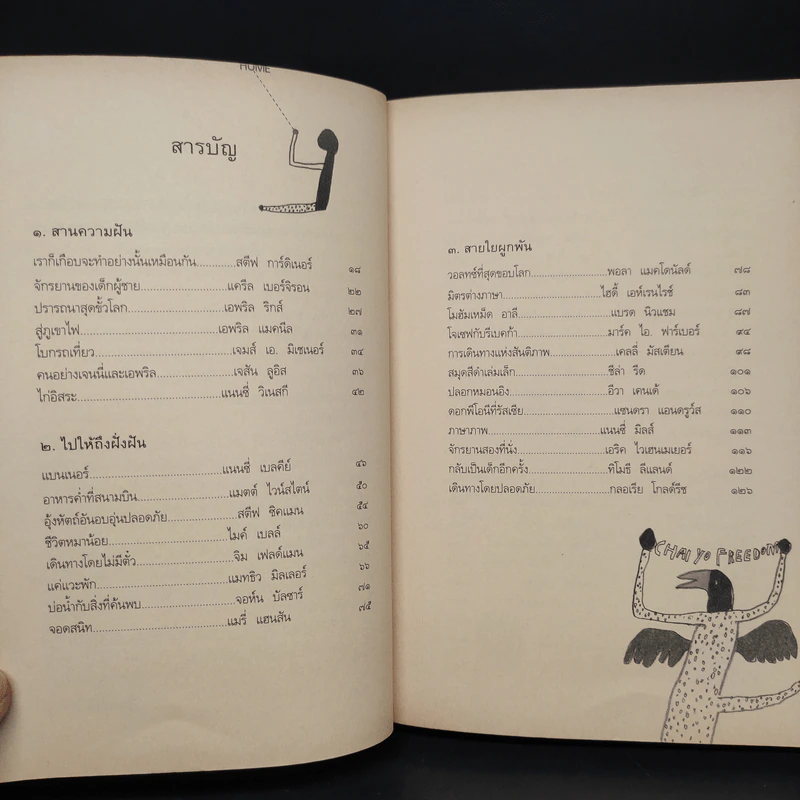 HOME
สารบัญ
๑. สานความฝัน
เราก็เกือบจะทำอย่างนั้นเหมือนกัน............สตีฟ การ์ดิเนอร์ ๑๘
จักรยานของเด็กผู้ชาย......................แครีล เบอร์จิรอน ๒๒
ปรารถนาสุดขั้วโลก.........................เอพริล ริกส์ ๒๗
สู่ภูเขาไฟ...................................เอพริล แมคนีล ๓๑
โบกรถเที่ยว...................................เจมส์ เอ. มิเชเนอร์ ๓๔
คนอย่างเจนนี่และเอพริล....................เจสัน ลูอิส ๓๖
ไก่อิสระ....................................แนนซี่ วิเนสกี ๔๒
๒. ไปให้ถึงฝั่งฝัน
แบนเนอร์..................................แนนซี่ เบลคีย์ ๔๖
อาหารค่ำที่สนามบิน.......................แมตต์ ไวน์สไตน์ ๕๐
อุ้งหัตถ์อันอบอุ่นปลอดภัย.................สตีฟ ซิคแมน ๕๔
ชีวิตหมาน้อย..............................ไมค์ เบลล์ ๖๐
เดินทางโดยไม่มีตั๋ว.......................จิม เฟลด์แมน ๖๕
แค่แวะพัก.................................แมทธิว มิลเลอร์ ๖๖
บ่อน้ำกับสิ่งที่ค้นพบ.......................จอห์น บัลซาร์ ๗๑
จอดสนิท..................................แมรี่ แฮนสัน ๗๕
๓. สายใยผูกพัน
วอลทซ์ที่สุดขอบโลก...................พอลา แมคโดนัลด์ ๗๘
มิตรต่างภาษา.........................ไฮดี้ เอห์เรนไรช์ ๘๓
โมฮัมเหม็ด อาลี.......................แบรด นิวแชม ๘๗
โจเซฟกับรีเบคก้า......................มาร์ค ไอ. ฟาร์เบอร์ ๙๔
การเดินทางแห่งสันติภาพ................เคลลี่ มัสเตียน ๙๘
สมุดสีดำเล่มเล็ก.......................ชีล่า รีด ๑๐๑
ปลอกหมอนอิง.........................อีวา เคนเด้ ๑๐๖
ดอกพีโอนีที่รัสเซีย.....................แซนดรา แอนดรูว์ส ๑๑๐
ภาษาภาพ............................แนนซี่ มิลส์ ๑๑๓
จักรยานสองที่นั่ง......................เอริค ไวเฮนเมเยอร์ ๑๑๖
กลับเป็นเด็กอีกครั้ง....................ทิโมธี ลีแลนด์ ๑๒๒
เดินทางโดยปลอดภัย...................กลอเรีย โกลด์รีช ๑๒๖
CHAI YO FREEDOM